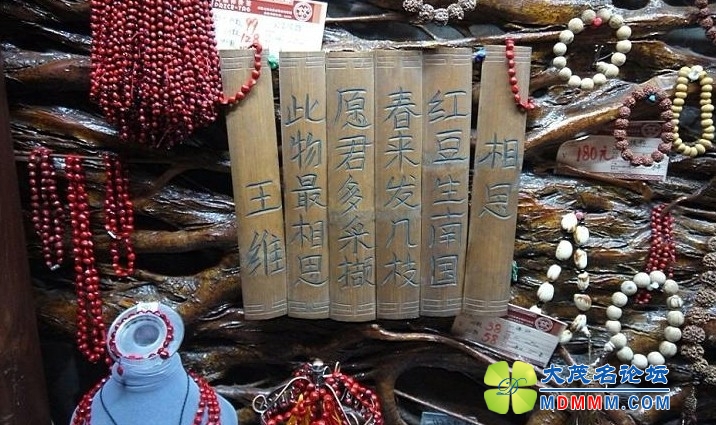 相思
红豆生南国
春来发几枝
愿君多采撷
此物最相思
王维
180元
大茂名论坛
MDMMM.COM